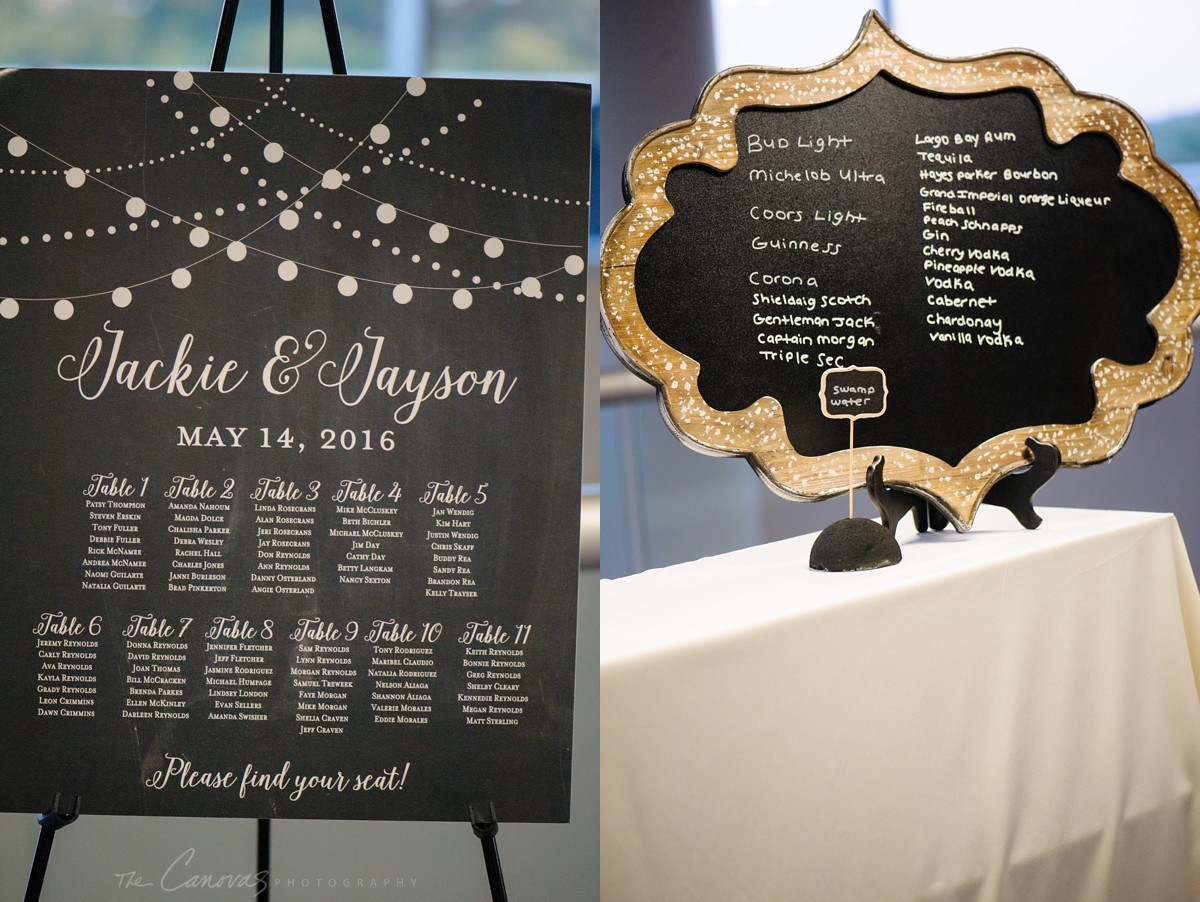 Jackie & Jayson
MAY 14, 2016
Table 1
PATSY THOMPSON
STEVEN ERSKIN
TONY FULLER
DEBBIE FULLER
RICK MCNAMEE
ANDREA MCNAMEE
NAOMI GUILARTE
NATALIA GUILARTE
Table 2
AMANDA NAHOUM
MAGDA DOLCE
CHALISHA PARKER
DEBRA WESLEY
RACHEL HALL
CHARLES JONES
JANNI BURLESON
BRAD PINKERTON
Table 3
LINDA ROSECRANS
ALAN ROSECRANS
JERI ROSECRANS
JAY ROSECRANS
DON REYNOLDS
ANN REYNOLDS
DANNY OSTERLAND
ANGIE OSTERLAND
Table 4
MIKE MCCLUSKEY
BETH BICHLER
MICHAEL MCCLUSKEY
JIM DAY
CATHY DAY
BETTY LANGKAM
NANCY SEXTON
Table 5
JAN WENDIG
KIM HART
JUSTIN WENDIG
CHRIS SKAFF
BUDDY REA
SANDY REA
BRANDON REA
KELLY TRAYSER
Table 6
JEREMY REYNOLDS
CARLY REYNOLDS
AVA REYNOLDS
KAYLA REYNOLDS
GRADY REYNOLDS
LEON CRIMMINS
DAWN CRIMMINS
Table 7
DONNA REYNOLDS
DAVID REYNOLDS
JOAN THOMAS
BILL MCCRACKEN
BRENDA PARKES
ELLEN MCKINLEY
DARLEEN REYNOLDS
Table 8
JENNIFER FLETCHER
JEFF FLETCHER
JASMINE RODRIGUEZ
MICHAEL HUMPAGE
LINDSEY LONDON
EVAN SELLERS
AMANDA SWISHER
Table 9
SAM REYNOLDS
LYNN REYNOLDS
MORGAN REYNOLDS
SAMUEL TREWEEK
FAYE MORGAN
MIKE MORGAN
SHELIA CRAVEN
JEFF CRAVEN
Table 10
TONY RODRIGUEZ
MARIBEL CLAUDIO
NATALIA RODRIGUEZ
NELSON ALIAGA
SHANNON ALIAGA
VALERIE MORALES
EDDIE MORALES
Table 11
KEITH REYNOLDS
BONNIE REYNOLDS
GREG REYNOLDS
SHELBY CLEARY
KENNEDIE REYNOLDS
MEGAN REYNOLDS
MATT STERLING
Please find your seat!
THE Canovas PHOTOGRAPHY
Bud Light
Michelob Ultra
Coors Light
Guinness
Corona
Shieldaig Scotch
Gentleman Jack
Captain Morgan
Triple Sec
Largo Bay Rum
Tequila
Hayes Parker Bourbon
Grand Imperial orange Liqueur
Fireball
Peach Schnapps
Gin
Cherry Vodka
Pineapple Vodka
Vodka
Cabernet
Chardonay
Vanilla Vodka
Swamp
water